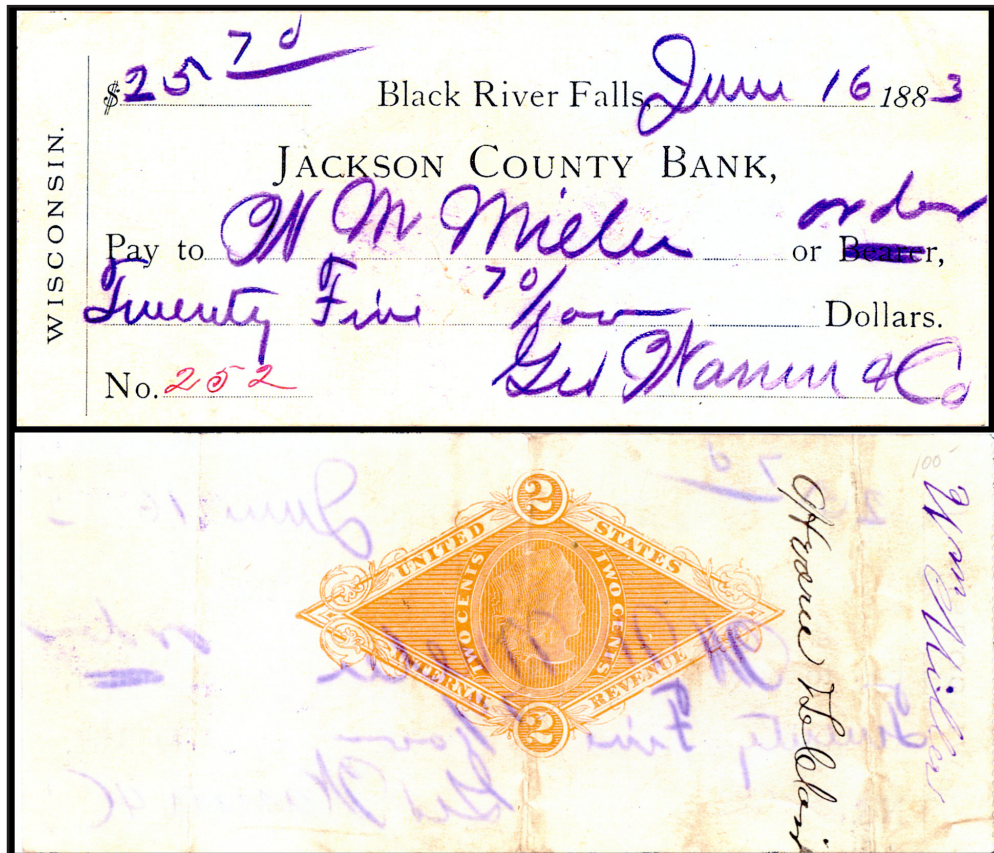 $ 25 70
Black River Falls, June 16 1883
WISCONSIN.
JACKSON COUNTY BANK,
Pay to W M Miller or Bearer, order
Twenty Five 70/100 Dollars.
No. 252
Geo Warren & Co
2
UNITED STATES
TWO CENTS TWO CENTS
INTERNAL REVENUE
2
Wm Miller
100